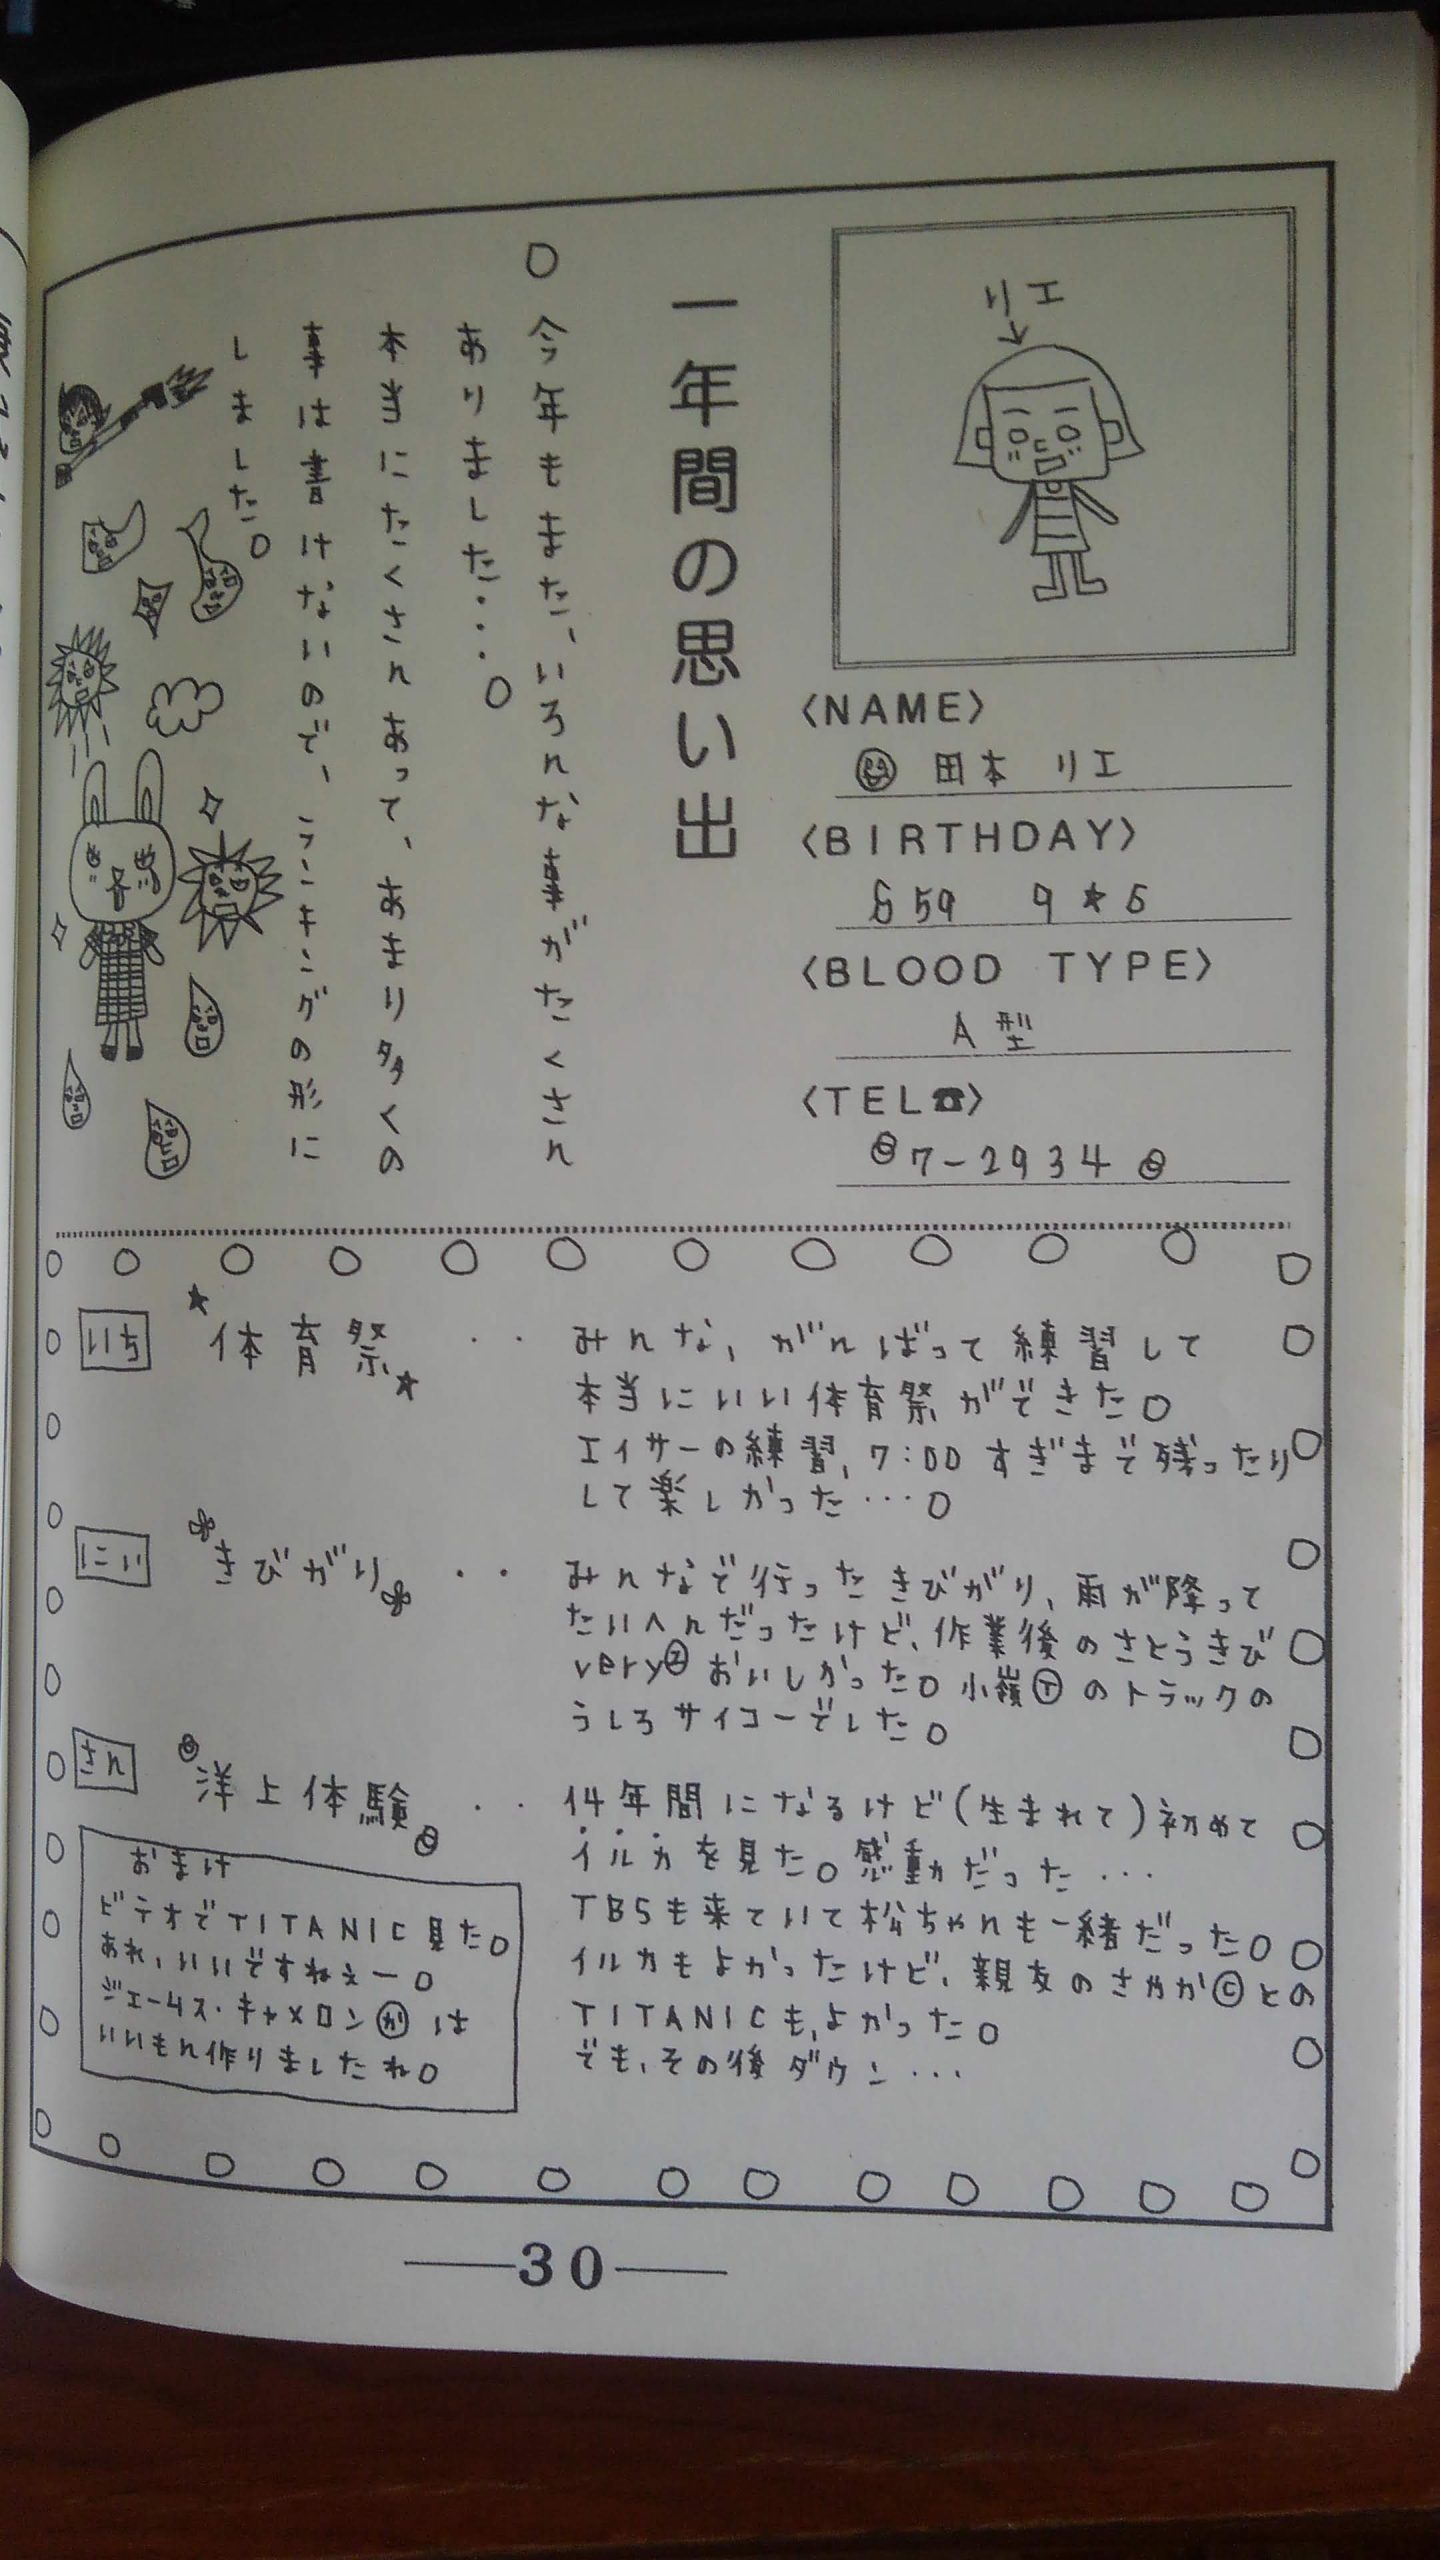 リエ
<NAME>
田本 リエ
<BIRTHDAY>
S59 9★6
<BLOOD TYPE>
A型
<TEL☎>
7-2934
一年間の思い出
今年もまた、いろんな事がたくさん
ありました・・・。
本当にたくさんあって、あまり多くの
事は書けないので、ランキングの形に
しました。
いち ★体育祭★ ・・ みんな、がんばって練習して
本当にいい体育祭ができた。
エイサーの練習、7:00すぎまで残ったり
して楽しかった…。
にい きびがり ・・ みんなで行ったきびがり、雨が降って
たいへんだったけど、作業後のさとうきび
very② おいしかった。小嶺Ⓣのトラックの
うしろサイコーでした。
さん 洋上体験 ・・ 14年間になるけど(生まれて)初めて
イルカを見た。感動だった…
TBSも来ていて松ちゃんも一緒だった。
イルカもよかったけど、親友のさやかⒸとの
TITANICも、よかった。
でも、その後ダウン…
おまけ
ビデオでTITANIC見た。
あれ、いいですねぇー。
ジェームス・キャメロン㋕は
いいもん作りましたね。
30